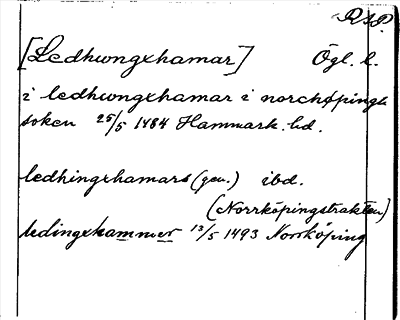 RAP.
[Ledhwngxhamar] Ögl. l.
i ledhwngxhamar i norchøpings
soken 25/5 1484 Hammark. hd.
ledhingxhamars (gen.) ibd.
(Norrköpingstrakten)
ledingxhammer 13/5 1493 Norrköping